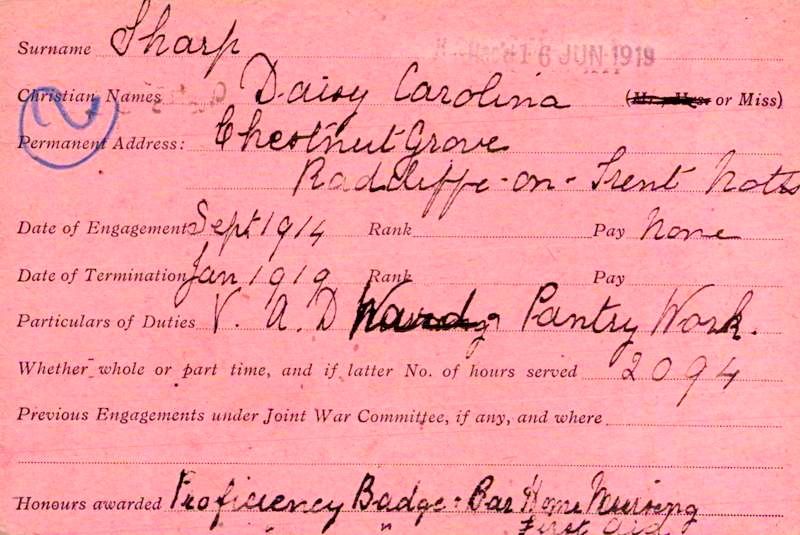 Surname Sharp
16 JUN 1919
Christian Names Daisy Carolina (Mr., Mrs. or Miss)
2
Permanent Address: Chestnut Grove
Radcliffe-on-Trent Notts
Date of Engagement Sept 1914 Rank Pay None
Date of Termination Jan 1919 Rank Pay
Particulars of Duties V. A. D Ward & Pantry Work.
Whether whole or part time, and if latter No. of hours served 2094
Previous Engagements under Joint War Committee, if any, and where
Honours awarded Proficiency Badge - Bar Home Nursing
" First Aid